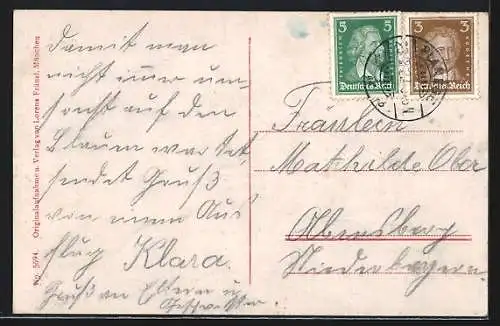 Damit man
nicht immer um-
sonst auf den
Blaum wartet,
sendet Gruß
von einem Aus
flug Klara.
Gruß an Eltern u
Geschwister.
No. 5694 Originalaufnahme u. Verlag von Lorenz Fränzl, München
5 5
Deutsches Reich
3 3
Deutsches Reich
Fräulein
Mathilde Ober
Abensberg
Niederbayern.